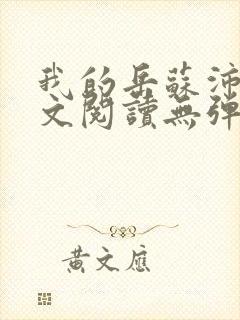 我的岳蘇沛
文閱讀無彈
黃文應